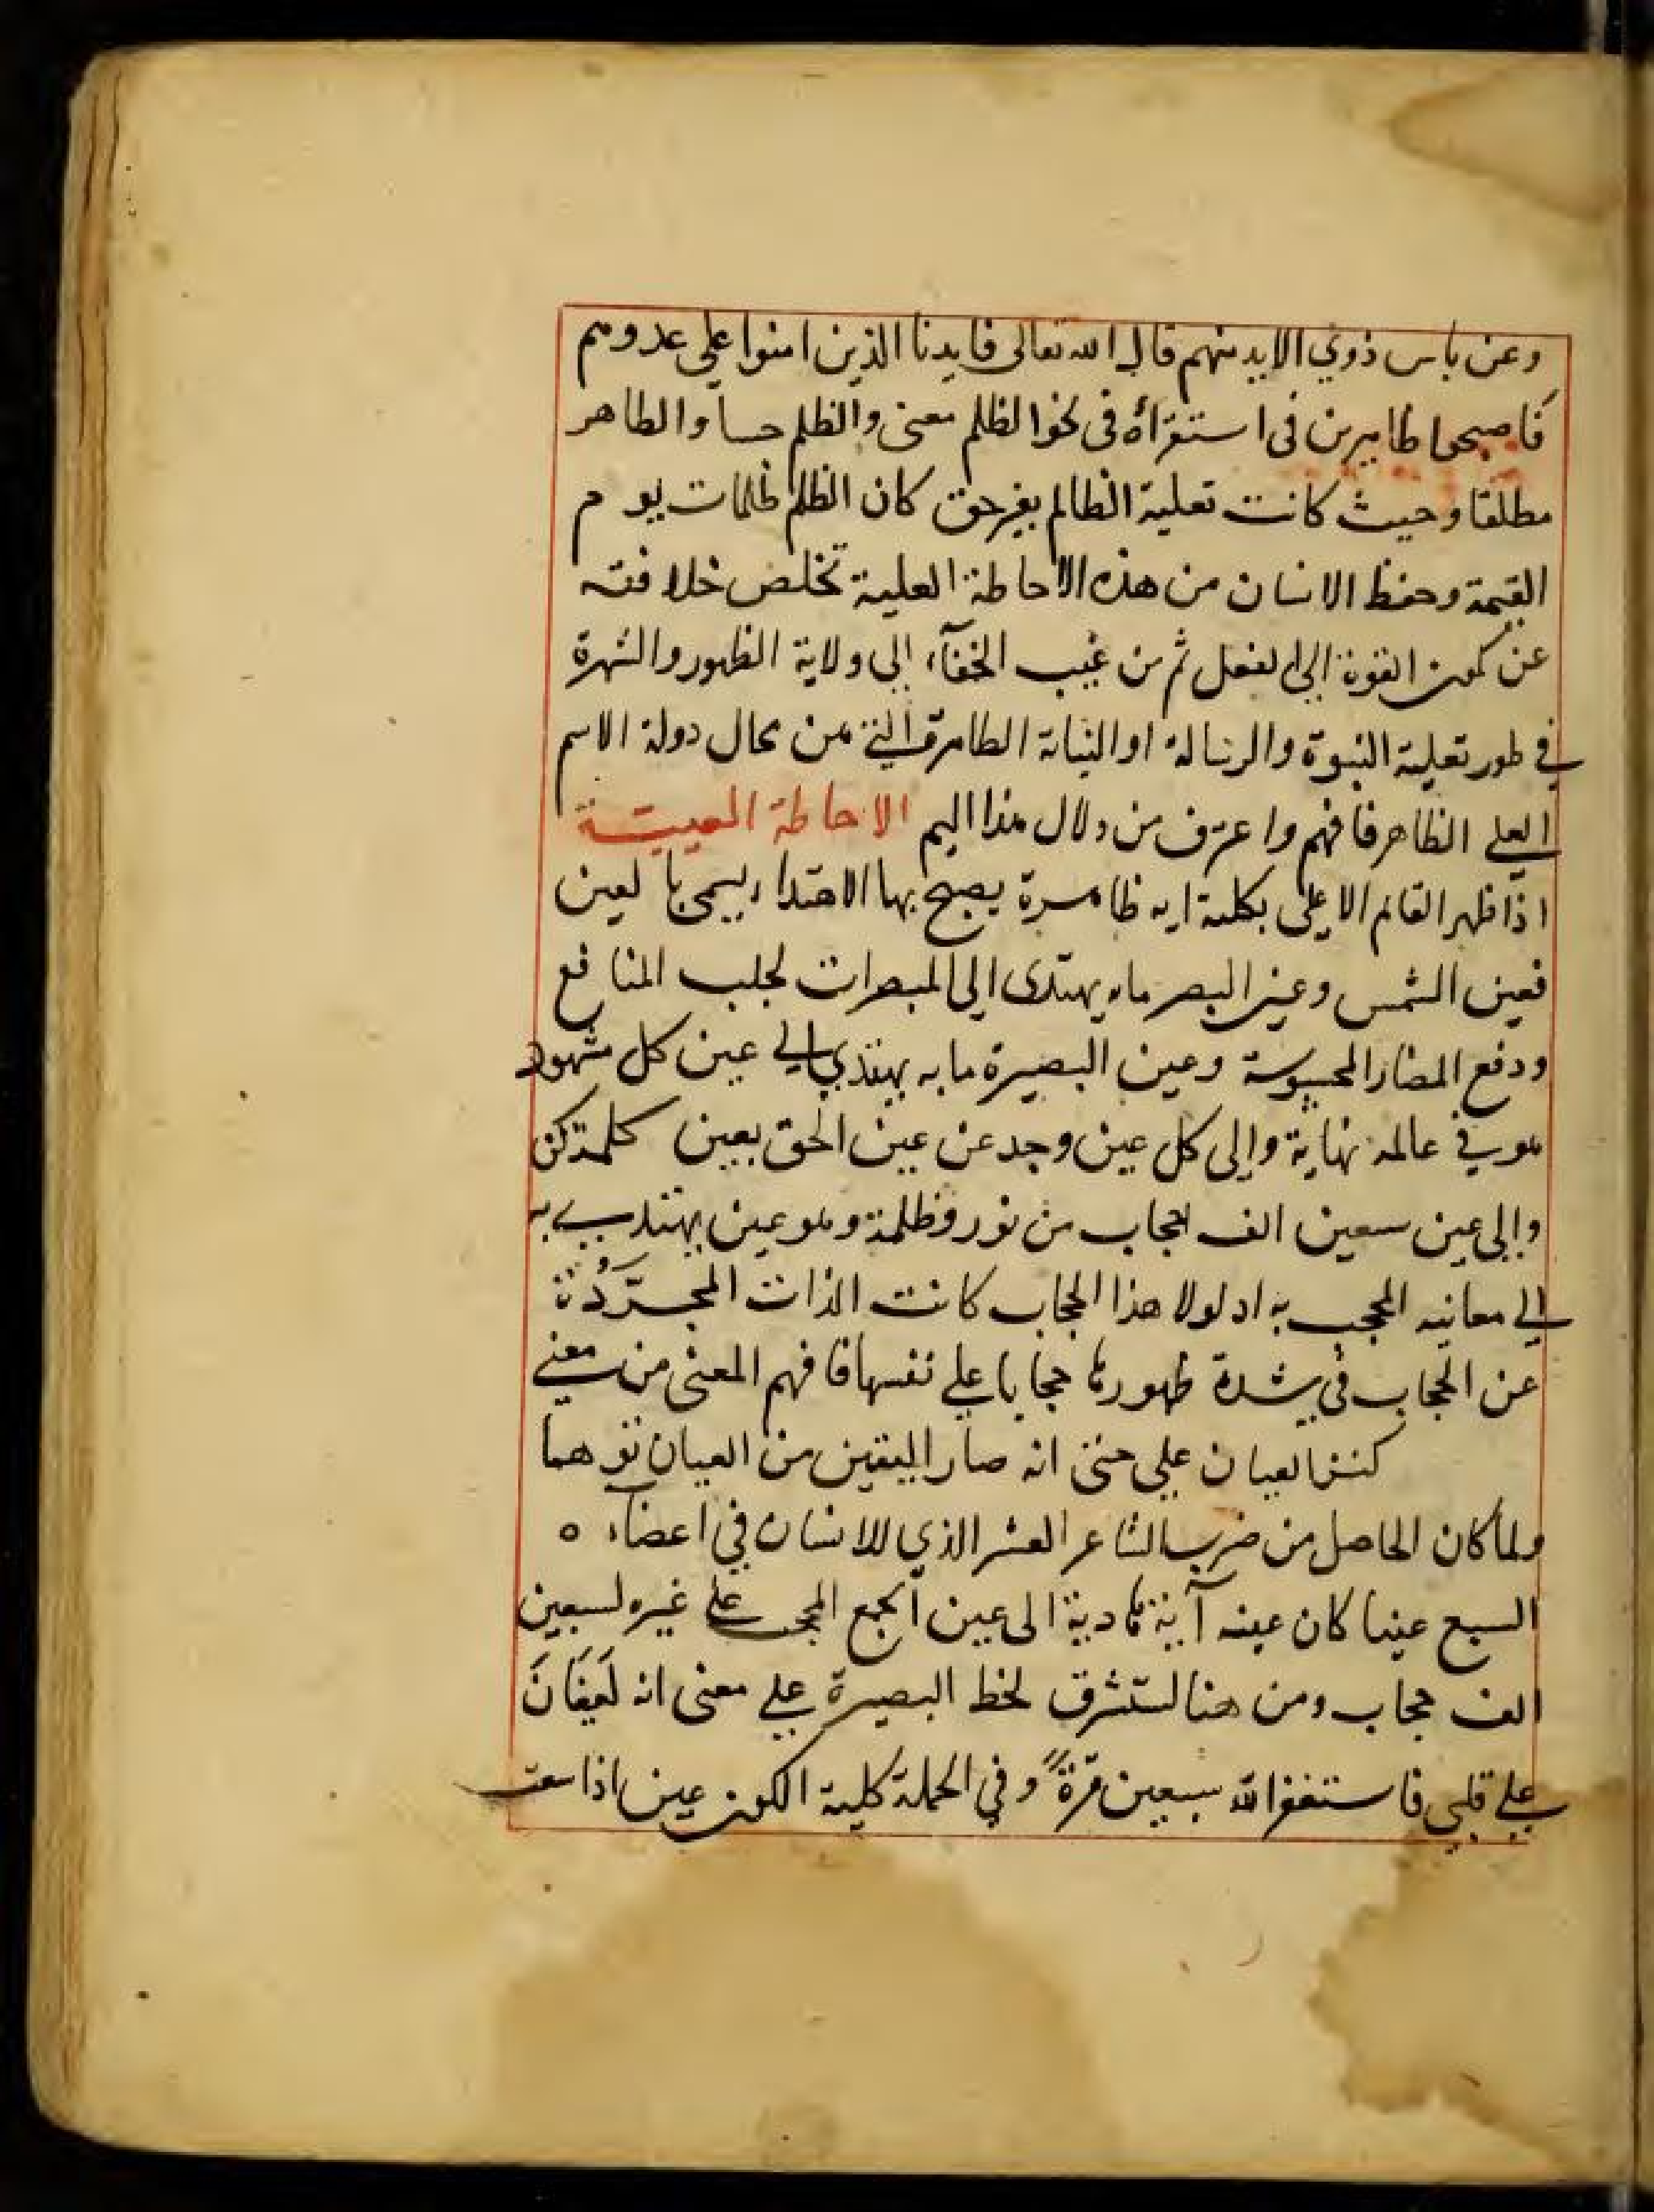 وعن باس ذوي الايد منهم قال الله تعالى فايدنا الذين امنوا على عدوهم
فاصبحوا ظاهرين في استقرائه في نحو الظلم معنى والظلم حسا والظاهر
مطلقا وحيث كانت تعلية الظالم بغير حق كان الظلم ظلمات يوم
القيمة وحفظ الانسان من هذه الاحاطة العلية تخلص خلافته
عن كمون القوة الى الفعل ثم من غيب الخفآء الى ولاية الظهور والشهرة
في طور تعلية النبوة والرسالة او النيابة الظاهرة التي من محال دولة الاسم
العلي الظاهر فافهم واعترف من دلال هذا اليم الاحاطة العينية
اذا ظهر القائم الاعلى بكلية ايه ظاهرة يصبح بها الاهتداء يسمى بالعين
فعين الشمس وعين البصر ما به يهتدى الى المبصرات لجلب المنافع
ودفع المضار المحسوسة وعين البصيرة ما به يهتدي الي عين كل مشهود
هو في عالمه نهاية والى كل عين وجد عن عين الحق بعين كلمة كن
والى عين سبعين الف حجاب من نور وظلمة وهو عين يهتدي به
الي معانيه المحجب به اد لولا هذا الحجاب كانت الذات المجرّدة
عن الحجاب في شدة ظهورها حجابا علي نفسها فافهم المعنى من معنى
كنت العيان علي حتى انه صار اليقين من العيان توهما
ولما كان الحاصل من ضرب المشاعر العشر الذي للانسان في اعضاء ه
السبع عينا كان عينه آية هادية الى عين الجمع المحجب على غيره لسبعين
الف حجاب ومن هنا استشرق لحظ البصيرة علي معنى انه لَيغَانَ
علي قلبي فاستغفر الله سبعين مرّةً وفي الجملة كلية الكون عين اذا